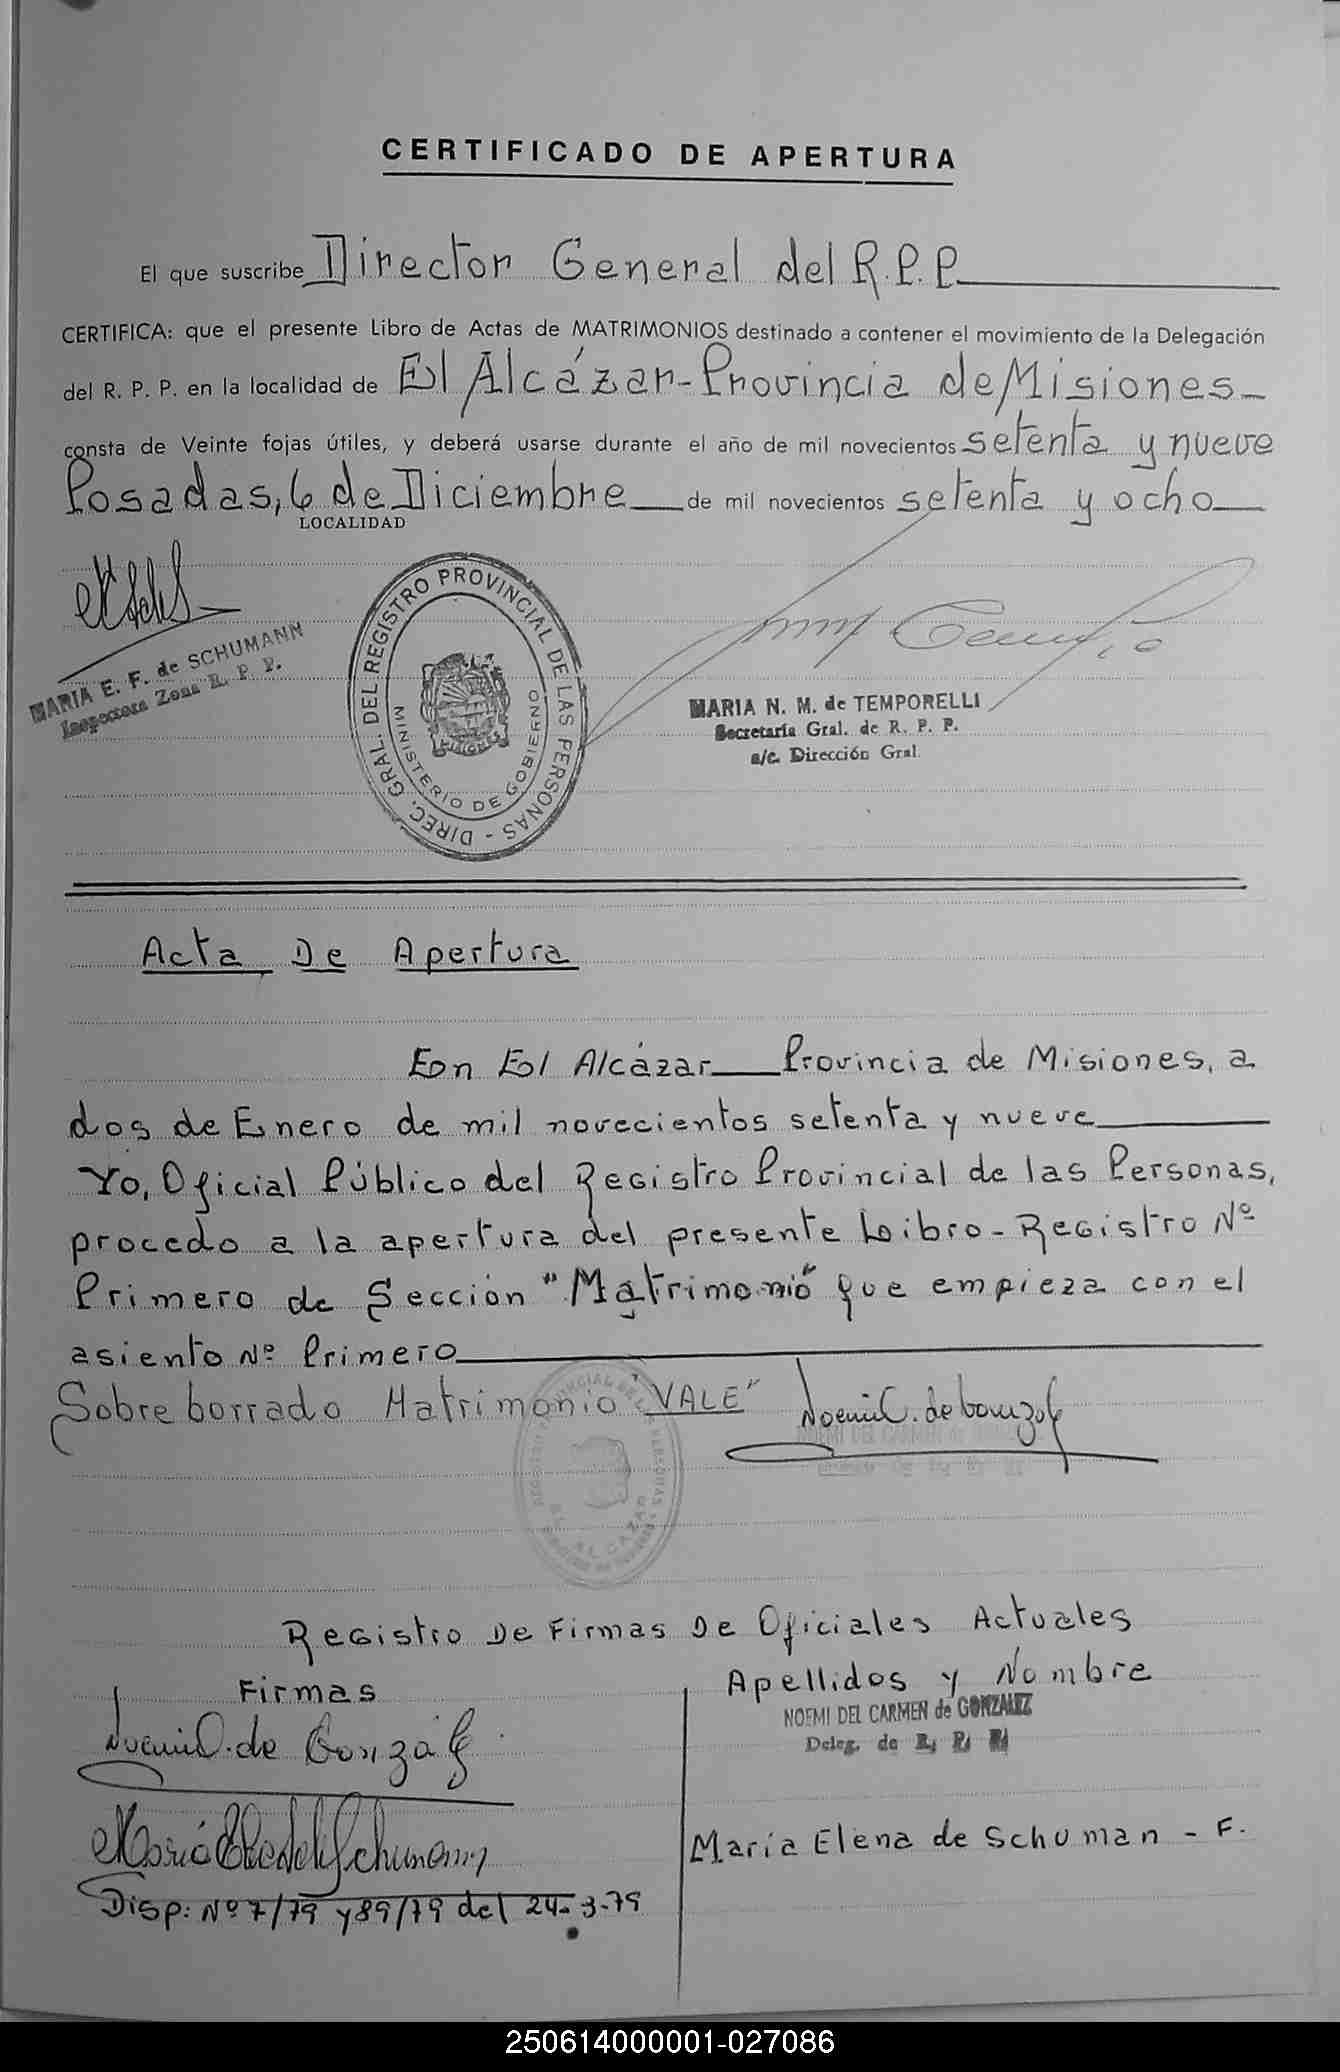 CERTIFICADO DE APERTURA
El que suscribe Director General del R.P.P.
CERTIFICA: que el presente Libro de Actas de MATRIMONIOS destinado a contener el movimiento de la Delegación
del R. P. P. en la localidad de El Alcázar - Provincia de Misiones
consta de Veinte fojas útiles, y deberá usarse durante el año de mil novecientos setenta y nueve
Posadas, 6 de Diciembre de mil novecientos setenta y ocho
LOCALIDAD
MARIA E. F. de SCHUMANN
Inspectora Zona R. P. P.
DIREC. GRAL. DEL REGISTRO PROVINCIAL DE LAS PERSONAS -
MINISTERIO DE GOBIERNO
MISIONES
MARIA N. M. de TEMPORELLI
Secretaria Gral. de R. P. P.
a/c. Dirección Gral.
Acta De Apertura
En El Alcázar Provincia de Misiones, a
dos de Enero de mil novecientos setenta y nueve
Yo, Oficial Público del Registro Provincial de las Personas,
procedo a la apertura del presente Libro - Registro Nº
Primero de Sección "Matrimonio" que empieza con el
asiento Nº Primero
Sobre borrado Matrimonio "VALE" Noemi C. de Gonzalez
NOEMI DEL CARMEN de
ALCAZAR
Registro De Firmas De Oficiales Actuales
Firmas Apellidos y Nombre
Noemi C. de Gonzalez NOEMI DEL CARMEN de GONZALEZ
Deleg. de R. P. P.
Maria E. de Schumann Maria Elena de Schuman - F.
Disp: Nº 7/79 y 89/79 del 24-3-79
250614000001-027086